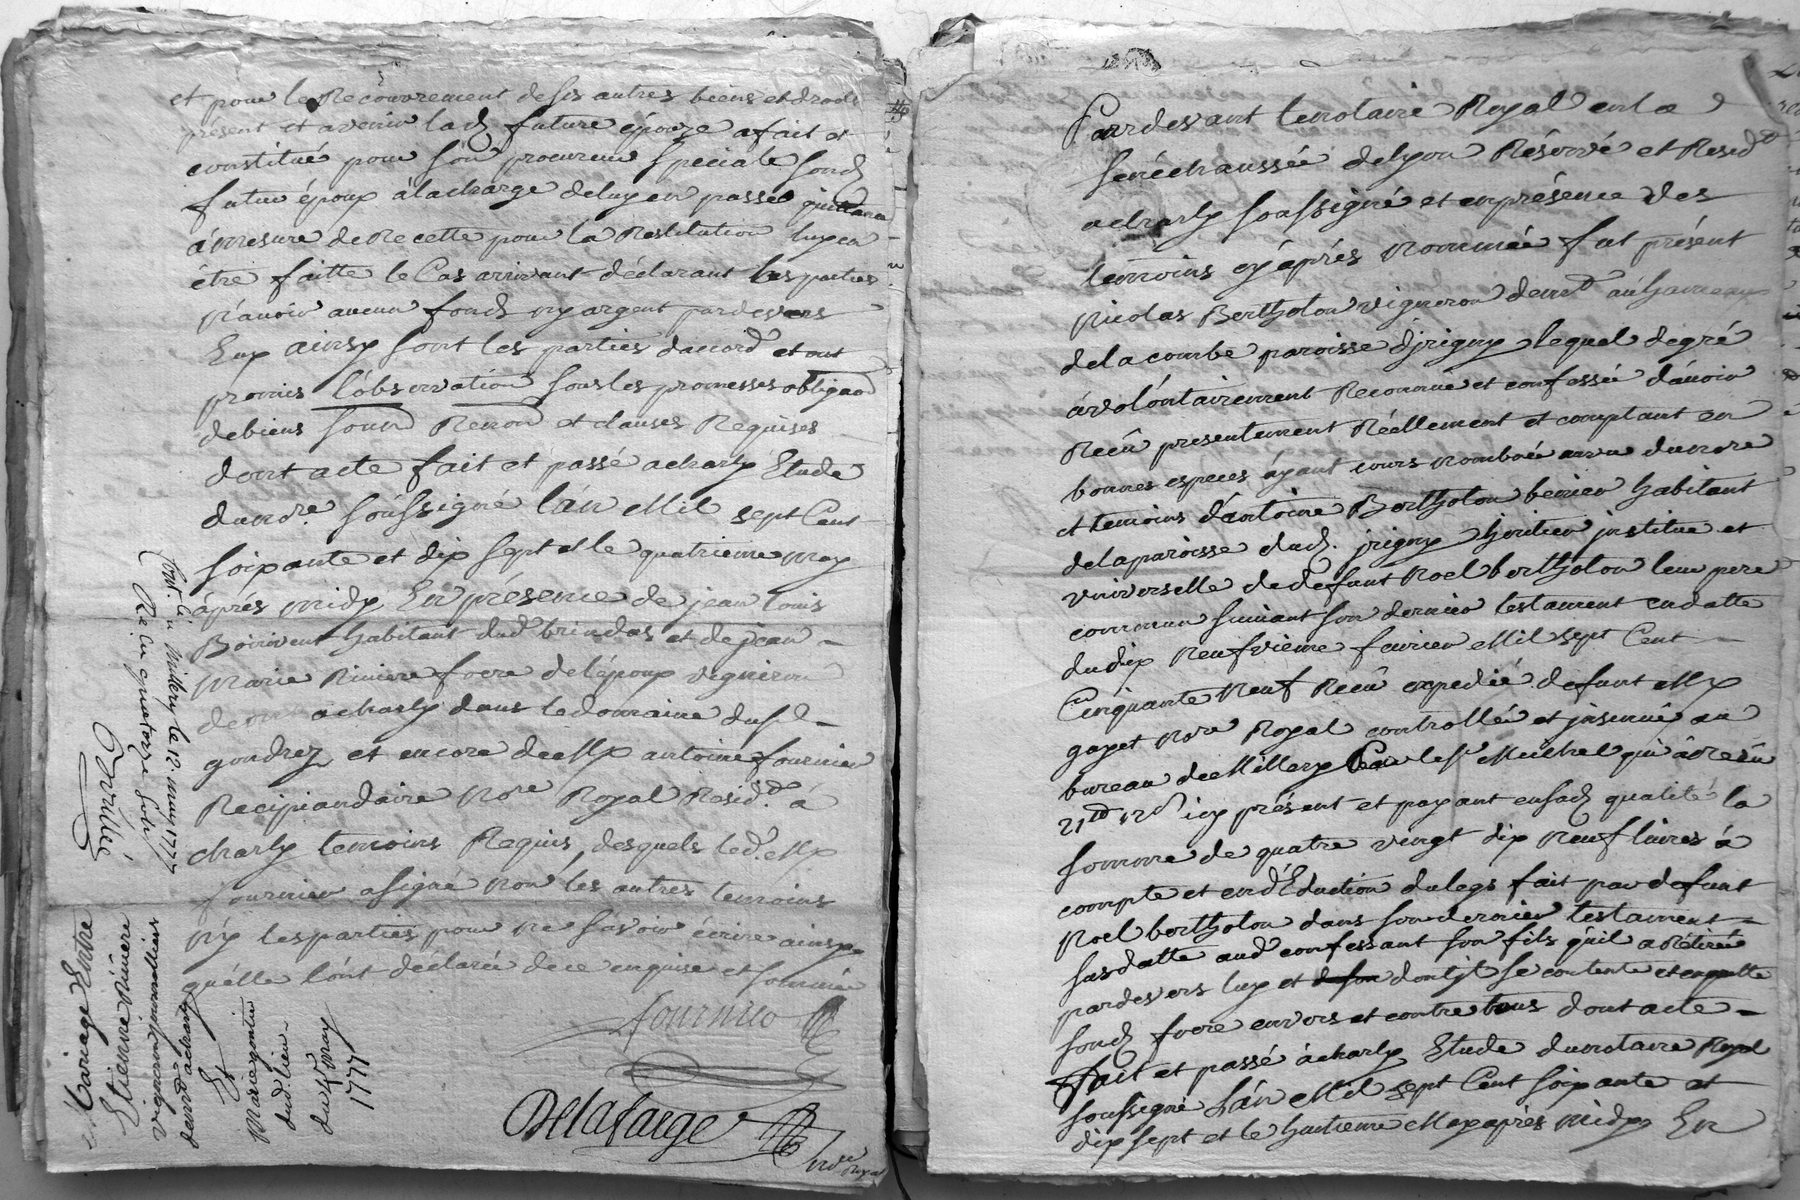 et pour le Recouvrement de ses autres biens et droits
présent et avenir lad. future épouze a fait et
constitué pour son procureur spéciale sond.
futur époux à la charge de luy en passer quittance
à mesure de Recette pour la Restitution luy en
être faitte le Cas arrivant déclarant les parties
n'avoir aucun fonds ny argent pardevers
Eux ainsy sont les parties d'accord et ont
promis l'observation sous les promesses obligaon
de biens soumn Renon et clauses Requises
dont acte fait et passé a charly Etude
dud nre. soussigné L'an Mil sept Cent
soixante et dix sept et le quatrieme may
après midy En présence de jean Louis
Boirivent habitant dud brindas et de jean
Marie Riviere frere de l'époux vigneron
demt a charly dans le domaine du sr
gondrez et encore de Me antoine fournier
Recipiandaire Nore Royal Resid. à
charly temoins Requis, desquels led. Me
fournier a signé non les autres temoins
ny les parties pour ne savoir écrire ainsy
qu'elle l'ont déclarée de ce enquise et sommée
fournier
Delafarge
nore Royal
Cont. à Millery le 12 may 1777
Re. quatorze sols
Mariage Entre
Etienne Riviere
vigneron journallier
demt a charly
Et
Marie gontier
dud. lieu
du 4 May
1777
Pardevant le notaire Royal en la
sénéchaussée de Lyon Réservé et Residt
a charly soussigné et en présence des
temoins cy après nommée fut présent
Nicolas Bertholon vigneron demt au hameau
de la combe paroisse d'jrigny lequel de gré
a volontairement Reconnue et confessée d'avoir
Recû presentement Réellement et comptant en
bonnes especes ayant cours nombrée a vu du nore
et temoins d'antoine Bertholon benier habitant
de la paroisse dud. jrigny heritier justitue et
universelle de defunt Noel bertholon leur pere
commun suivant son dernier testament en datte
du dix Neufvieme fevrier Mil sept Cent
Cinquante Neuf Recû expedié defunt Me
gayet Nore Royal controllé et jnsinué au
bureau de Millery Par le sr Michel qui a Recû
icy présent et payant en sad. qualité la
somme de quatre vingt dix Neuf livres à
compte et en d'Eduction du legs fait par defunt
Noel bertholon dans son dernier testament
susdatte aud confessant son fils qu'il a Rétirée
pardevers luy et dont jl se contente et en quitte
sond. frere envers et contre tous dont acte
Fait et passé à charly Etude du notaire Royal
soussigné L'an Mil sept Cent soixante et
dix sept et le huitieme May après midy En